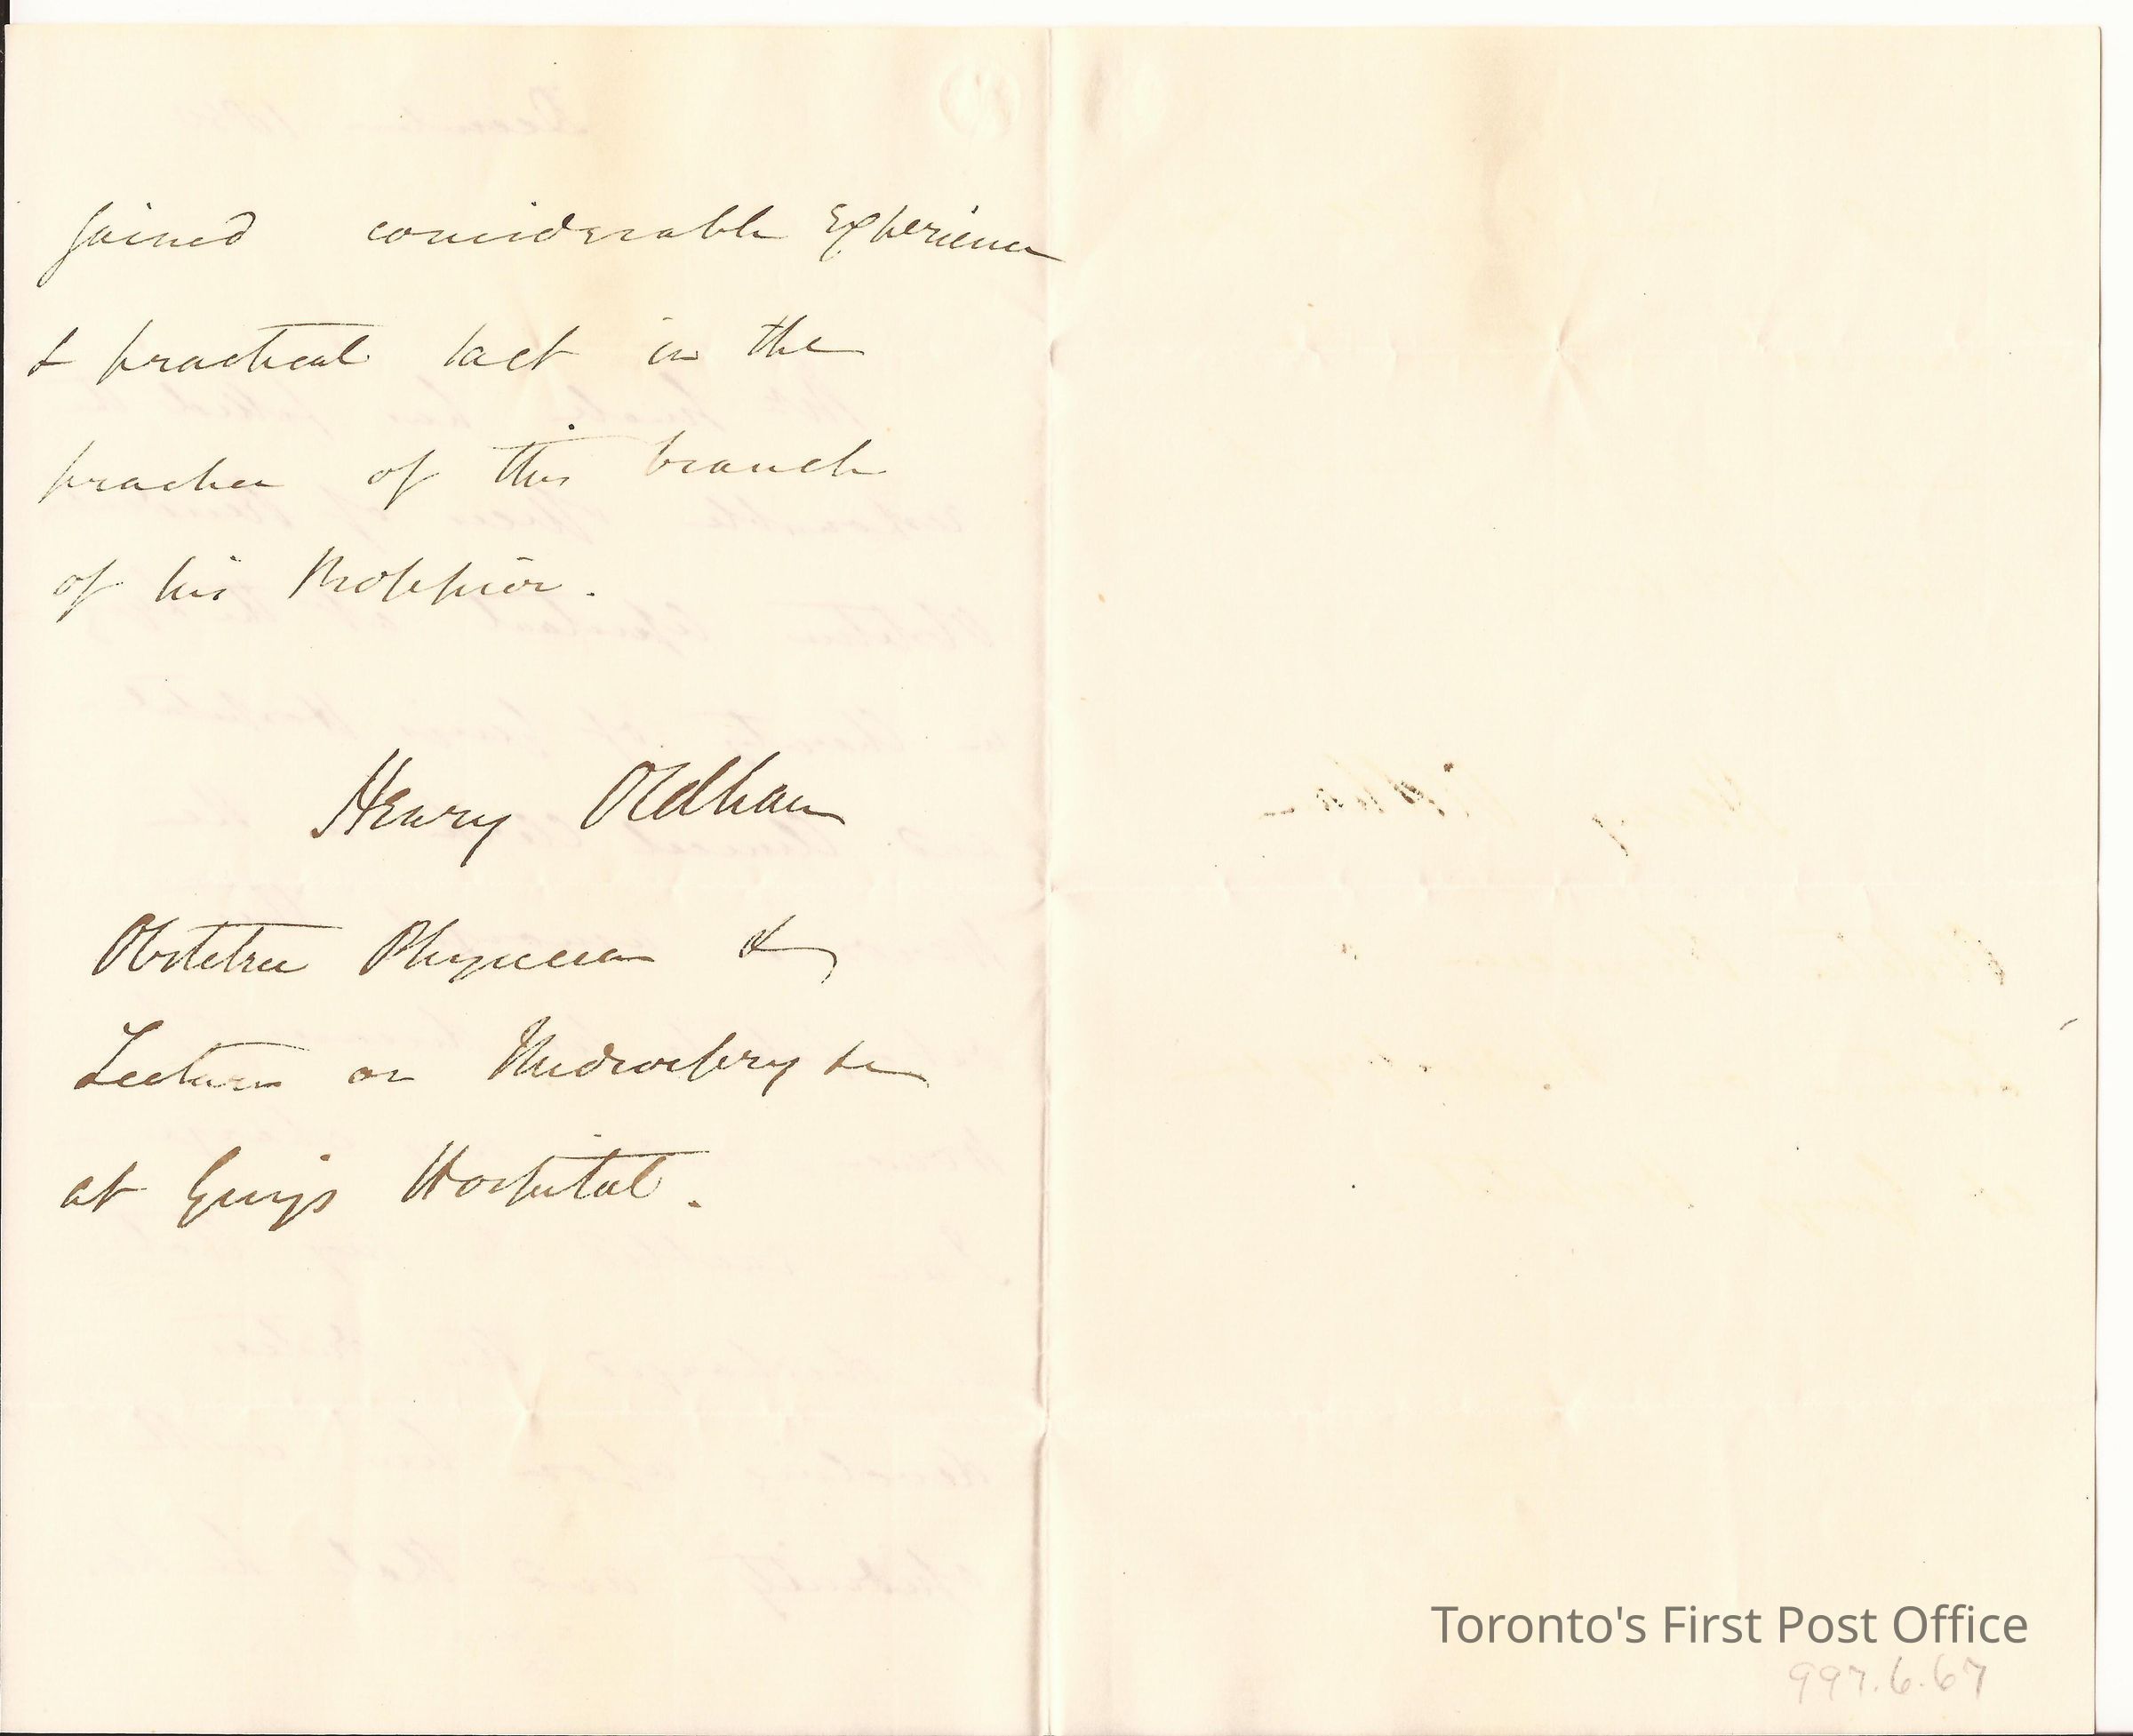 gained considerable experience
& practical tact in the
practice of this branch
of his Profession.
Henry Oldham
Obstetric Physician &
Lecturer on Midwifery &c
at Guy's Hospital.
Toronto's First Post Office
997.6.67